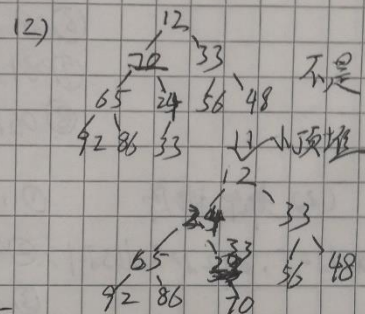 (2) 12
70 33 不是
65 24 56 48
92 86 33 ↓↓小顶堆
12
24 33
65 33 56 48
92 86 70